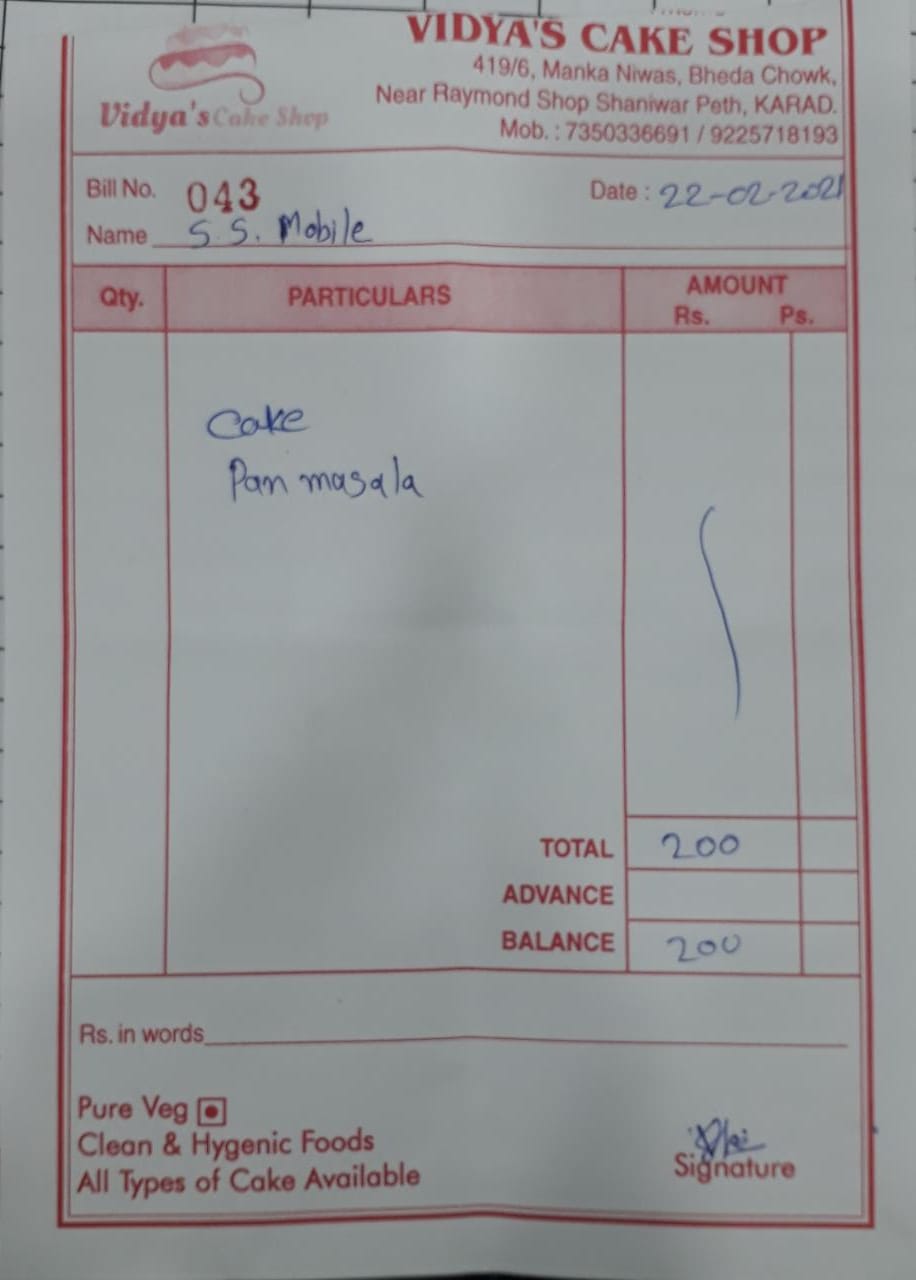 VIDYA'S CAKE SHOP
419/6, Manka Niwas, Bheda Chowk,
Near Raymond Shop Shaniwar Peth, KARAD.
Mob. : 7350336691 / 9225718193
Vidya's Cake Shop
Bill No. 043 Date : 22-02-2021
Name S.S. Mobile
Qty. PARTICULARS AMOUNT
Rs. Ps.
Cake
Pan masala
TOTAL 200
ADVANCE
BALANCE 200
Rs. in words
Pure Veg
Clean & Hygenic Foods
All Types of Cake Available
Signature